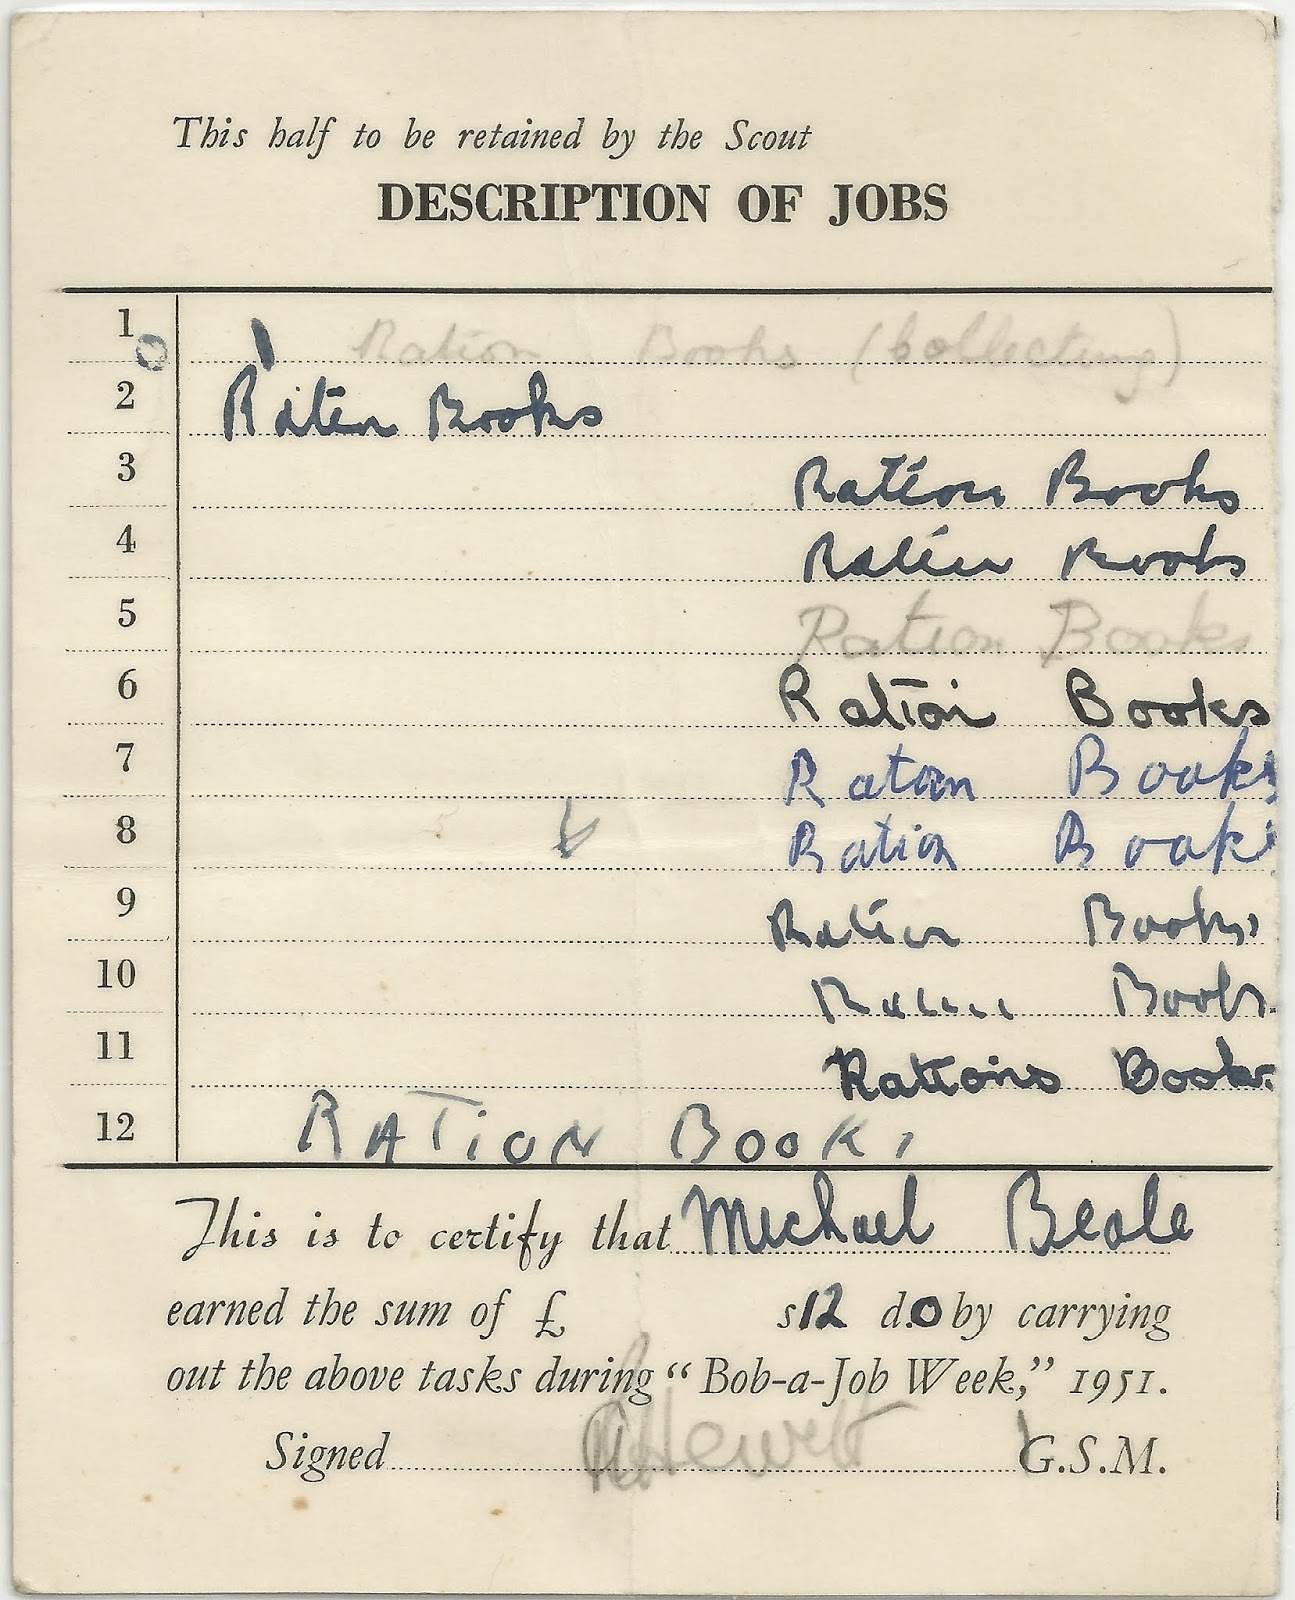 This half to be retained by the Scout
DESCRIPTION OF JOBS
1 Ration Books (collecting)
2 Ration Books
3 Ration Books
4 Ration Books
5 Ration Books
6 Ration Books
7 Ration Books
8 Ration Books
9 Ration Books
10 Ration Books
11 Rations Books
12 RATION BOOKS
This is to certify that Michael Beale
earned the sum of £ s12 d.0 by carrying
out the above tasks during "Bob-a-Job Week," 1951.
Signed Hewett G.S.M.